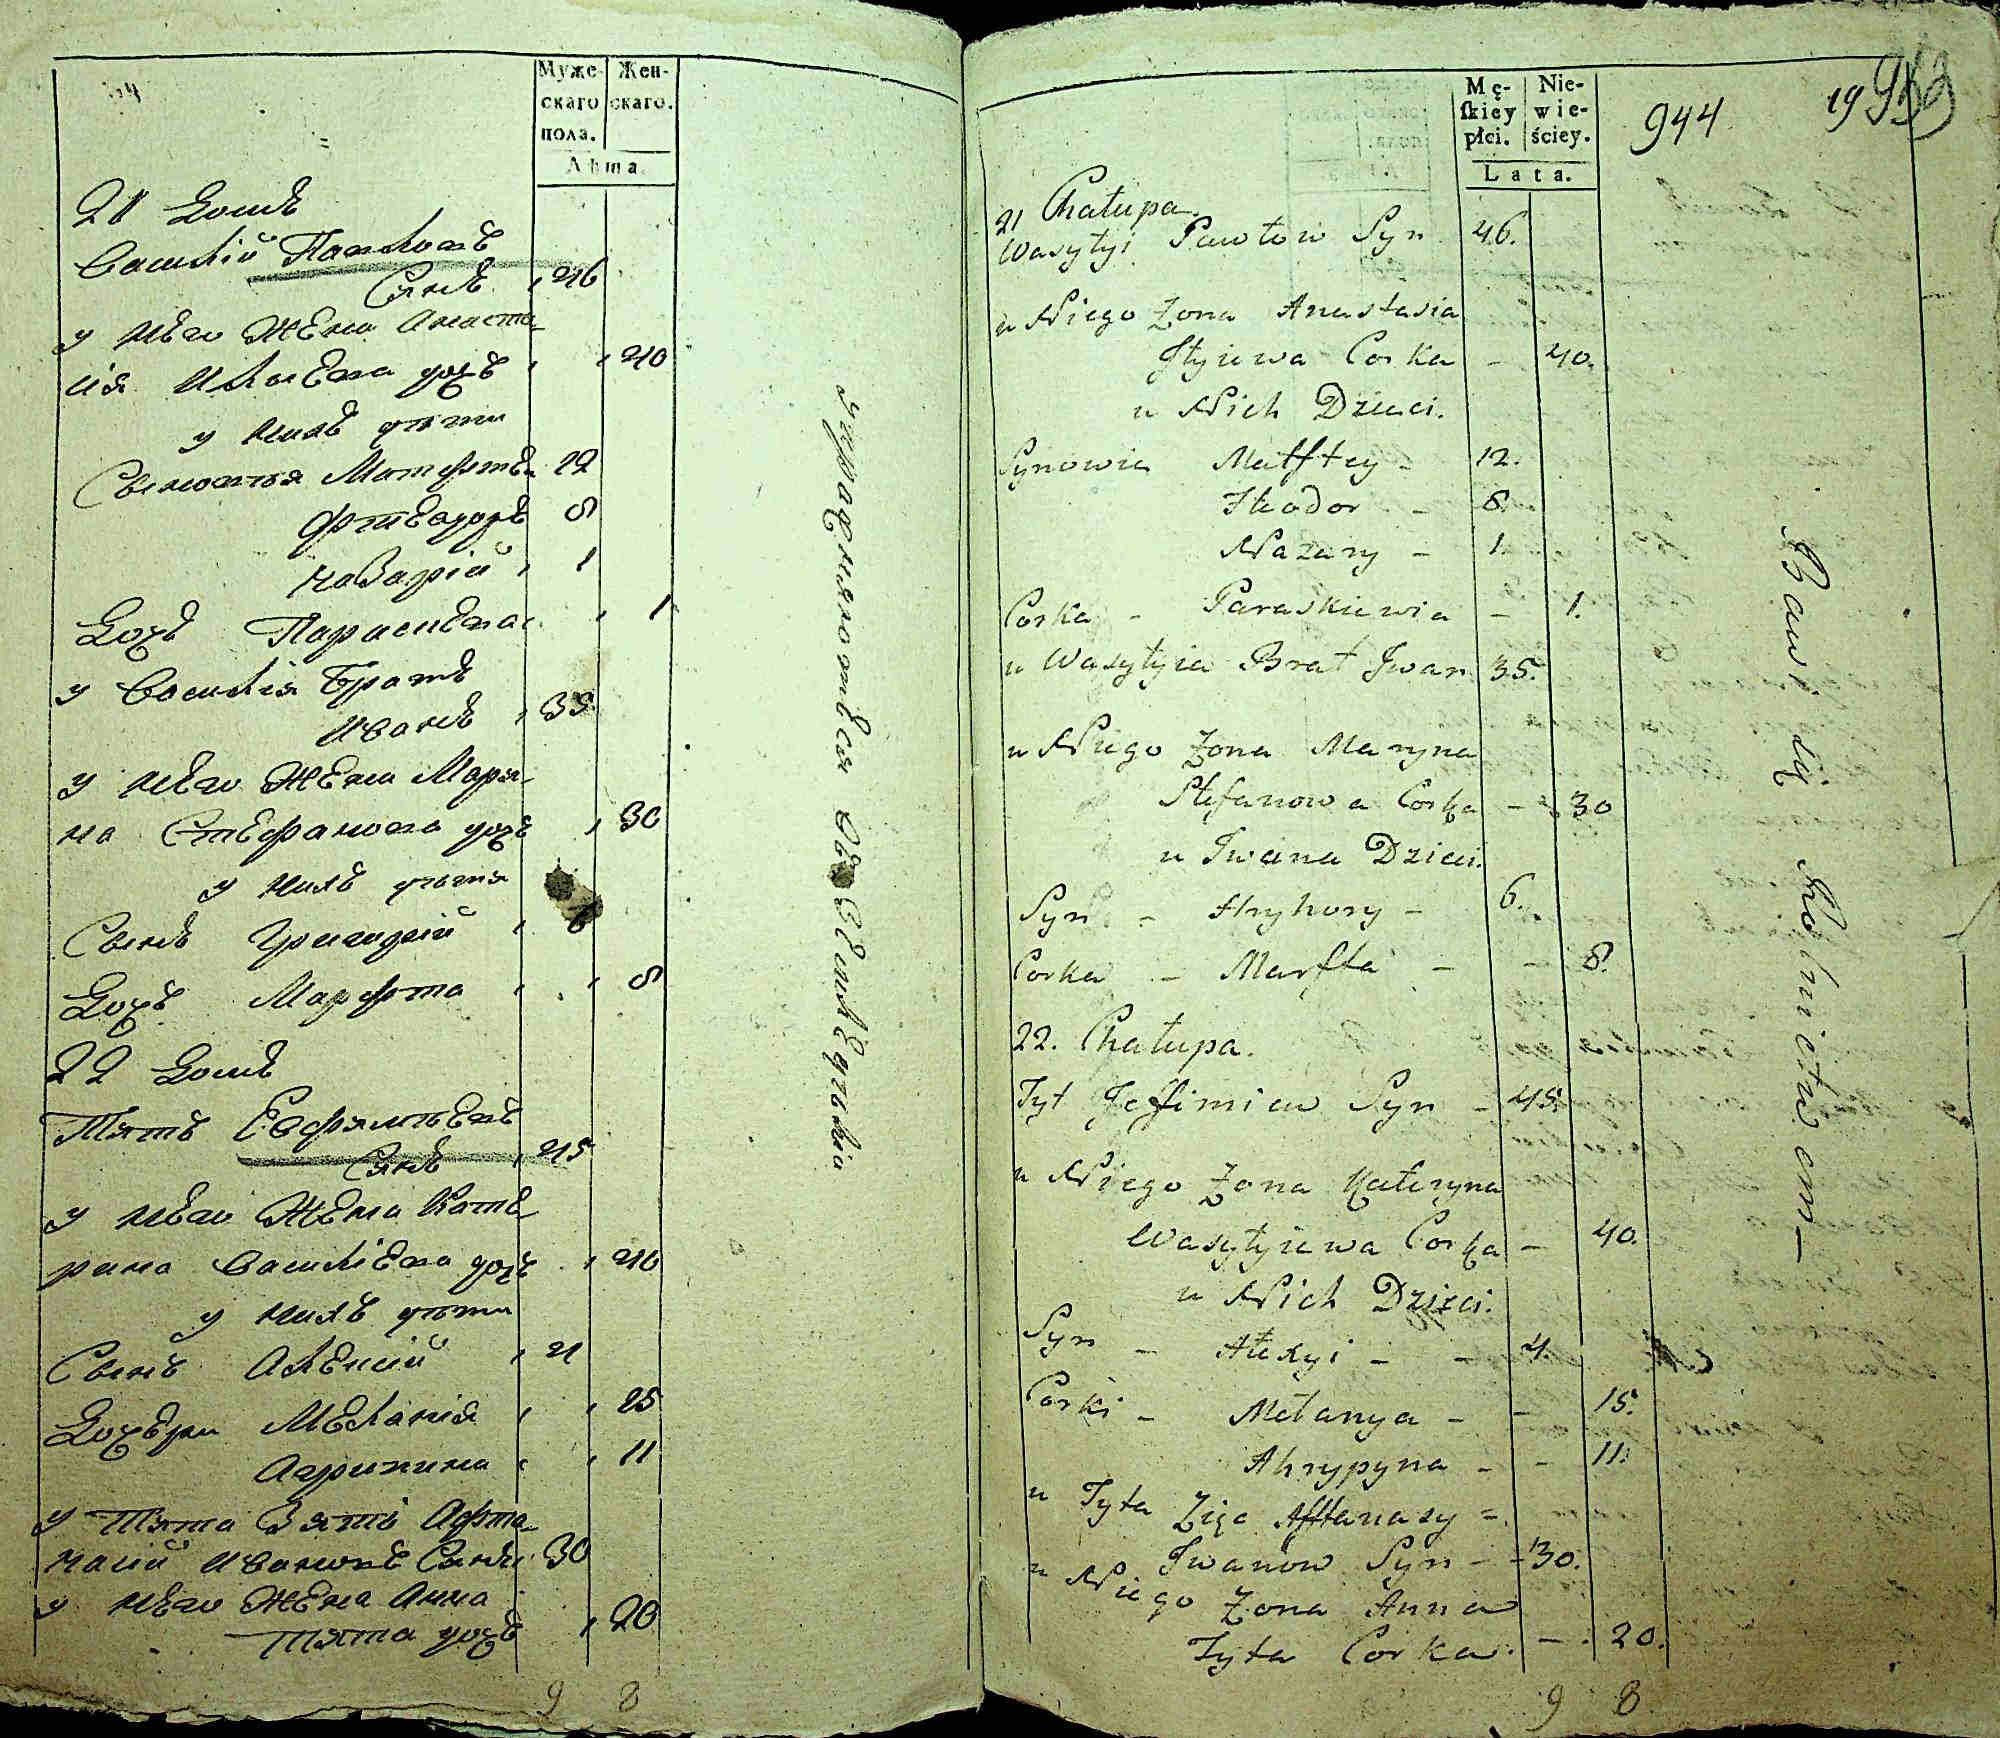 Муже-
скаго
пола.
Жен-
скаго.
Лѣта.
21 Домъ
Василій Павловъ
Сынъ 46
у него Жена Анаста-
сія Ильева дочь 40
у нихъ дѣти
Сыновья Матфтей 12
Фтеодоръ 8
Назарій 1
Дочь Параскева 1
у Василія Братъ
Иванъ 35
у него Жена Мари-
на Стефанова дочь 30
у нихъ дѣти
Сынъ Григорій 6
Дочь Марфта 8
22 Домъ
Титъ Евфимьевъ
Сынъ 45
у него Жена Кате-
рина Василіева дочь 40
у нихъ дѣти
Сынъ Алексій 4
Дочери Меланія 15
Агрипина 11
у Тита Зять Афта-
насій Ивановъ Сынъ 30
у него Жена Анна
Тита дочь 20
9 8
упражняются въ земледѣліи
Mę-
skiey
płci.
Nie-
wie-
ściey.
Lata.
944
19
21 Chałupa.
Wasylyi Pawłow Syn 46.
u Niego Żona Anastasia
Jlyiewa Corka - 40.
u Nich Dzieci.
Synowie Mafftey - 12.
Fteodor - 8.
Nazary - 1.
Corka - Paraskiewia - 1.
u Wasylyia Brat Jwan 35.
u Niego Żona Maryna
Stefanowa Corka - 30
u Jwana Dzieci.
Syn - Hryhory - 6.
Corka - Marfta - - 8.
22. Chałupa.
Tyt Jeffimiew Syn - 45.
u Niego Żona Kateryna
Wasylyiewa Corka - 40.
u Nich Dzieci.
Syn - Alexyi - - 4.
Corki - Melanya - - 15.
Ahrypyna - - 11.
u Tyta Zięc Afftanasy =
Jwanow Syn - - 30.
u Niego Żona Anna
Tyta Corka. - . 20.
9 8
Bawi się Rolnictwem -